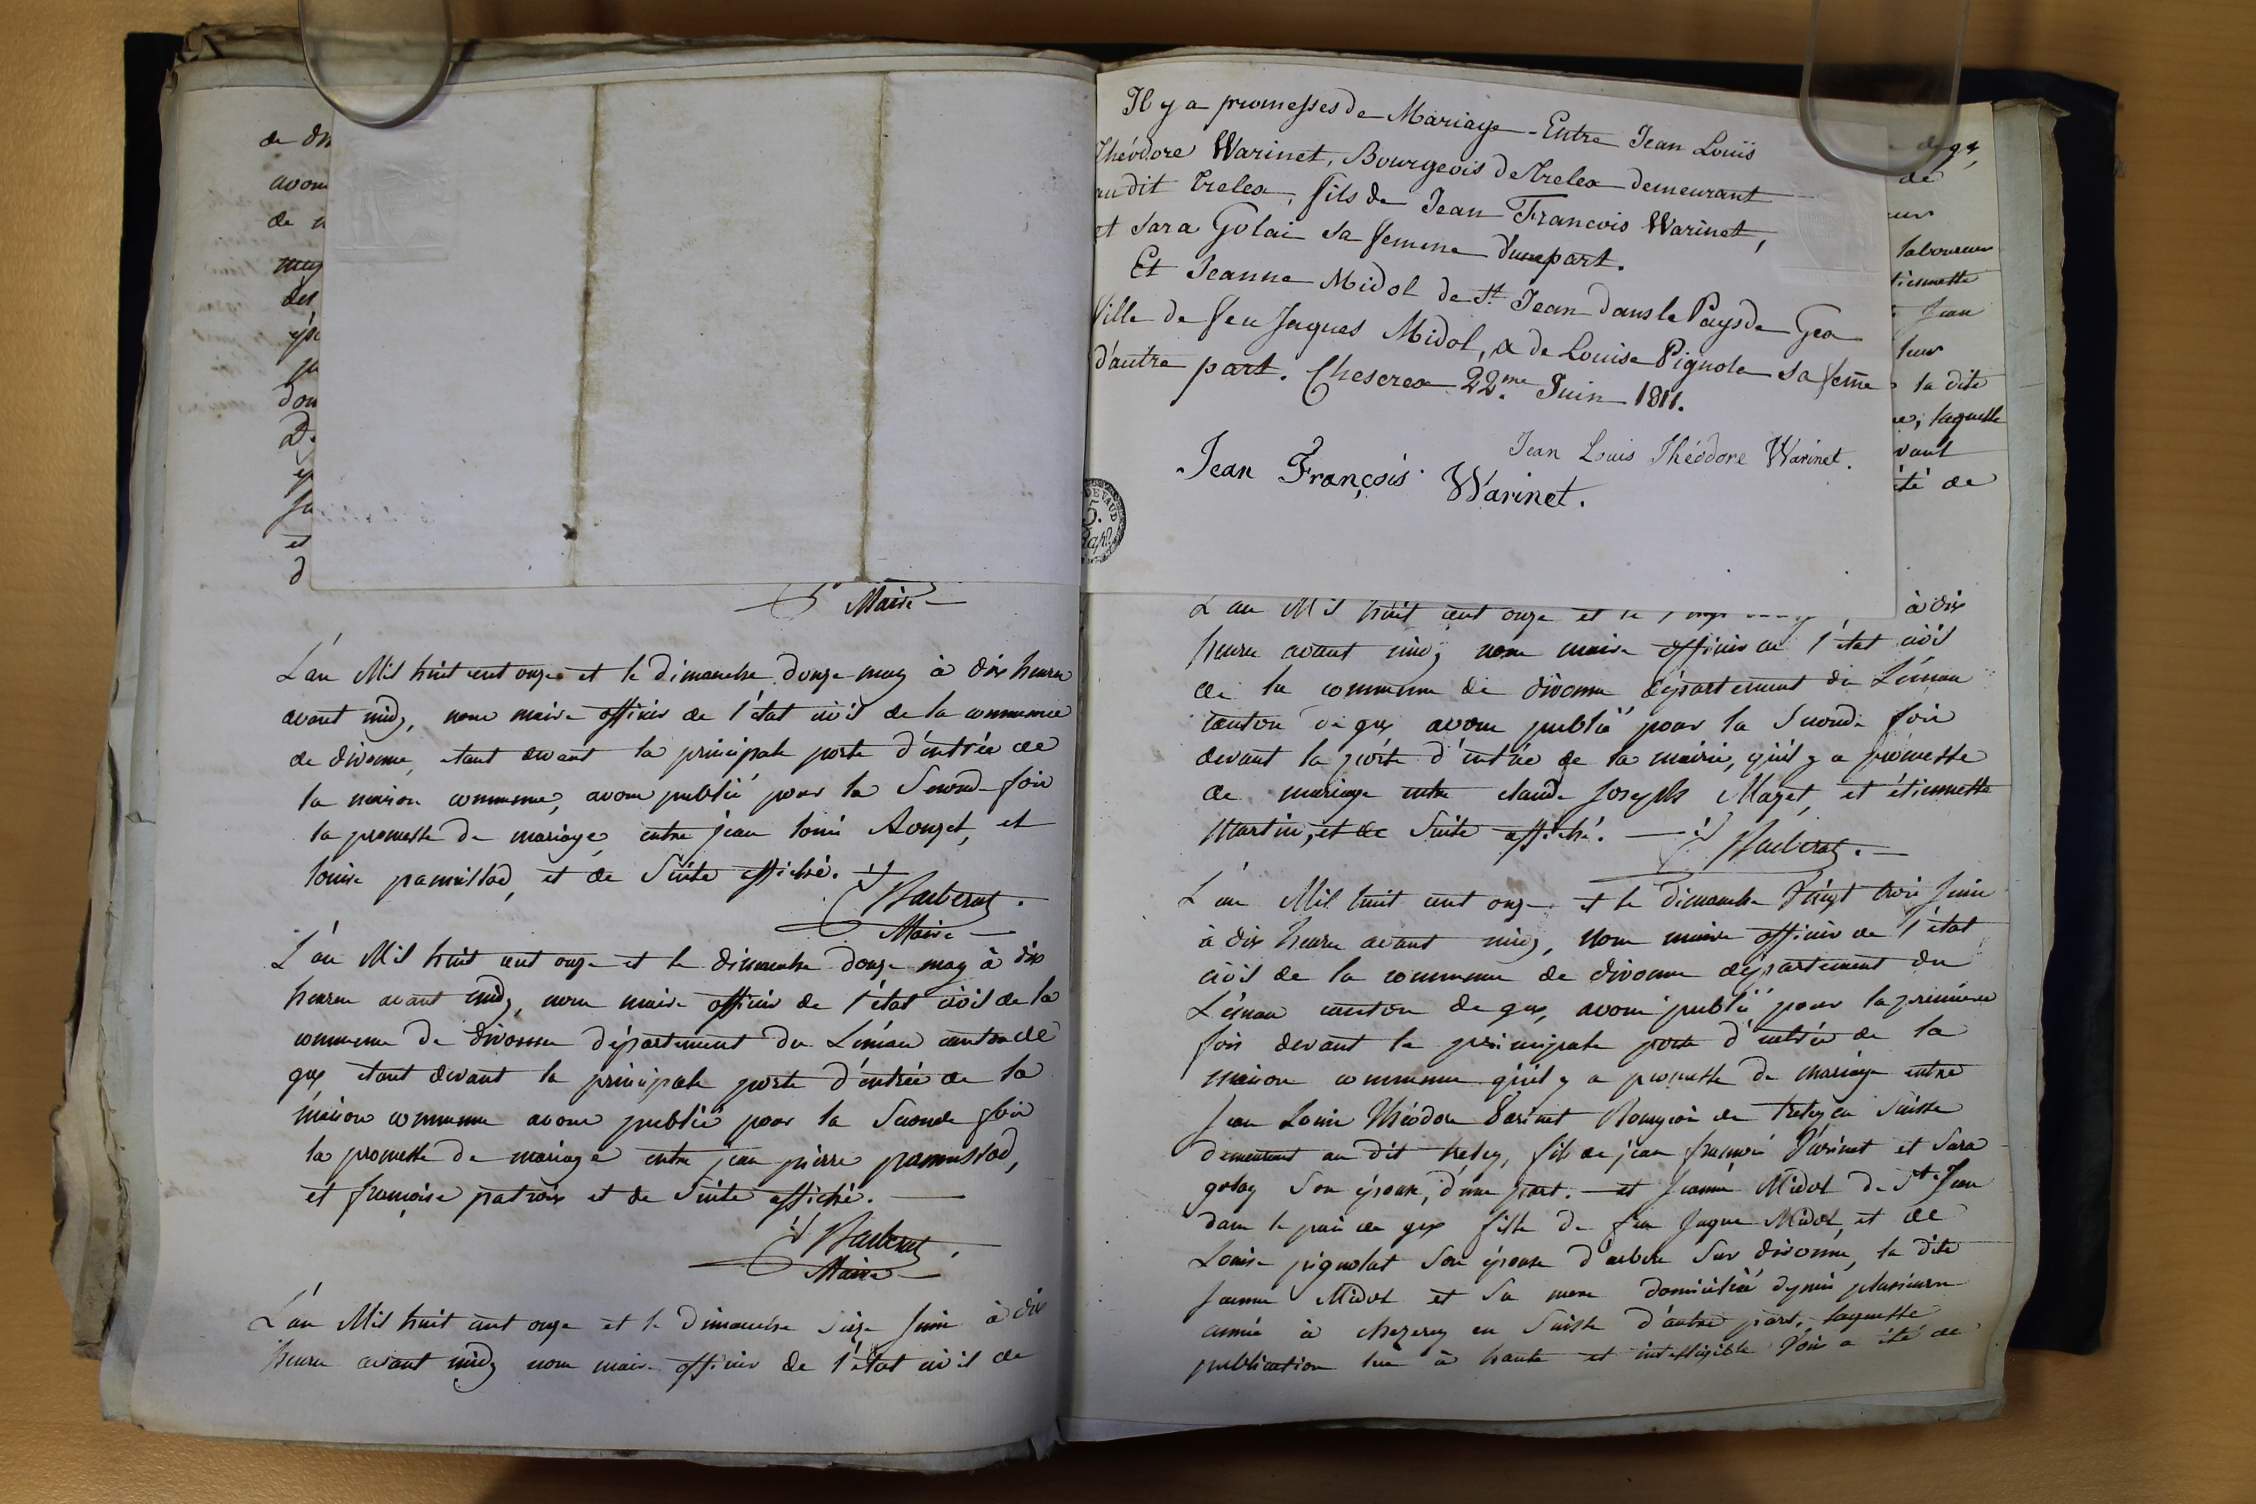 de di
avon
de n
may
des
épo
ju
dom
D.
ep
Ja
et
d
Maire
L'an Mil huit cent onze et le dimanche douze may à dix heure
avant midy, nous maire officier de l'état civil de la commune
de divonne, etant devant la principale porte d'entrée de
la maison commune, avons publié pour la Seconde fois
la promesse de mariage, entre jean louis Rouzet, et
louise panissod, et de Suite affiché.
Barberat.
Maire
L'an Mil huit cent onze et le dimanche douze may à dix
heure avant midy, nous maire officier de l'état civil de la
commune de divonne département du Léman canton de
gex etant devant la principale porte d'entrée de la
maison commune avons publié pour la Seconde fois
la promesse de mariage entre jean pierre panissod,
et françoise patroix et de Suite affiché.
Barberat.
Maire
L'an Mil huit cent onze et le dimanche Seize Juin à dix
heure avant midy nous maire officier de l'état civil de
Il y a promesses de Mariage Entre Jean Louis
Théodore Warinet, Bourgeois de Trelex demeurant
au dit Trelex, fils de Jean Francois Warinet,
et Sara Golai sa femme d'une part.
Et Jeanne Midol de St Jean dans le Pays de Gex
fille de feu Jaques Midol, & de Louise Pignole sa feme
d'autre part. Cheserex 22.me Juin 1811.
Jean Louis Théodore Warinet.
Jean François Warinet.
DE VAUD
5.
Rap.
de gex,
de
eur
laboureur
tiennette
Jean
leur
la dite
e, laquelle
vant
été de
L'an Mil huit cent onze et le à dix
heure avant midy nous maire officier de l'état civil
de la commune de divonne département du Léman
canton de gex avons publié pour la Seconde fois
devant la porte d'entrée de la mairie, qu'il y a promesse
de mariage entre claude Joseph Mazet, et étiennette
Martin, et de Suite affiché.
Barberat.
L'an Mil huit cent onze et le dimanche Vingt trois Juin
à dix heure avant midy, nous maire officier de l'état
civil de la commune de divonne département du
Léman canton de gex, avons publié pour la première
fois devant la principale porte d'entrée de la
maison commune qu'il y a promesse de mariage entre
Jean Louis Théodore Varinet Bourgeois de treley en Suisse
demeurant au dit treley, fils de jean françois Varinet et Sara
golay Son épouse, d'une part. et Jeanne Midol de St Jean
dans le païs de gex fille de feu Jaque Midol, et de
Louise pignolat Son épouse d'arbere Sur divonne, la dite
Jeanne Midol et Sa mere domicilié depuis plusieurs
année à cheserey en Suisse d'autre part, laquelle
publication lue à haute et intelligible Voix a été de